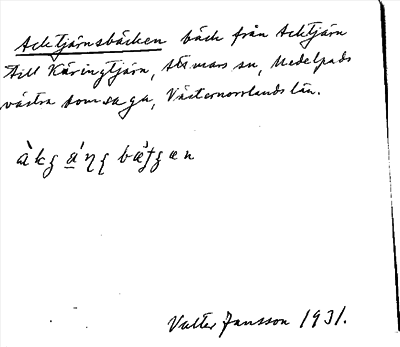 Acktjärnsbäcken bäck från Acktjärn
till Käringtjärn, Stirmars sn, Medelpads
västra domsaga, Västernorrlands län.
Valter Jansson 1931.